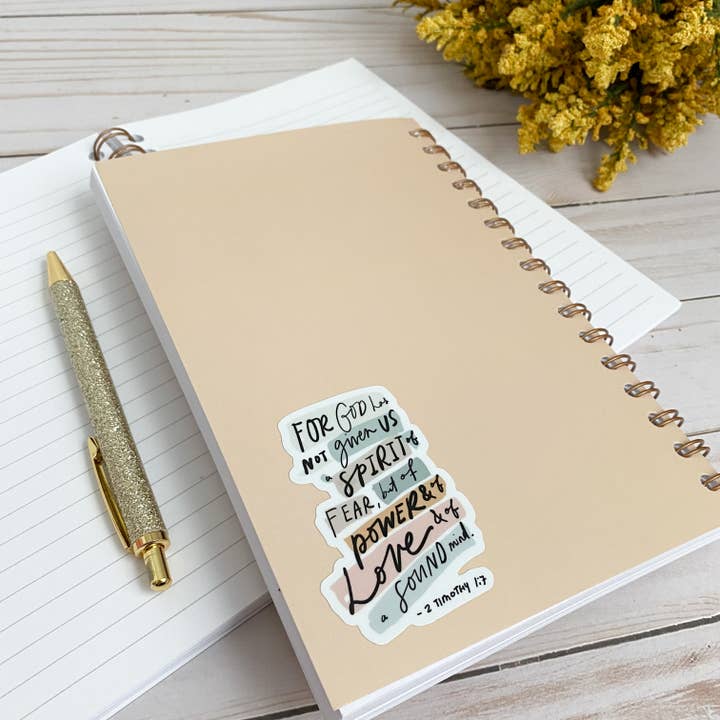 FOR GOD has
NOT given US
a SPIRIT of
FEAR, but of
POWER & of
LOVE & of
a SOUND mind.
- 2 TIMOTHY 1:7